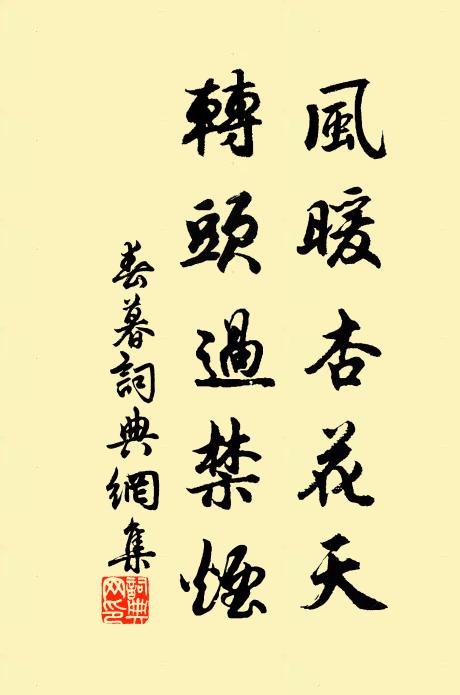 風暖杏花天
轉頭過禁煙
春暮詞典網集
詞典
网印